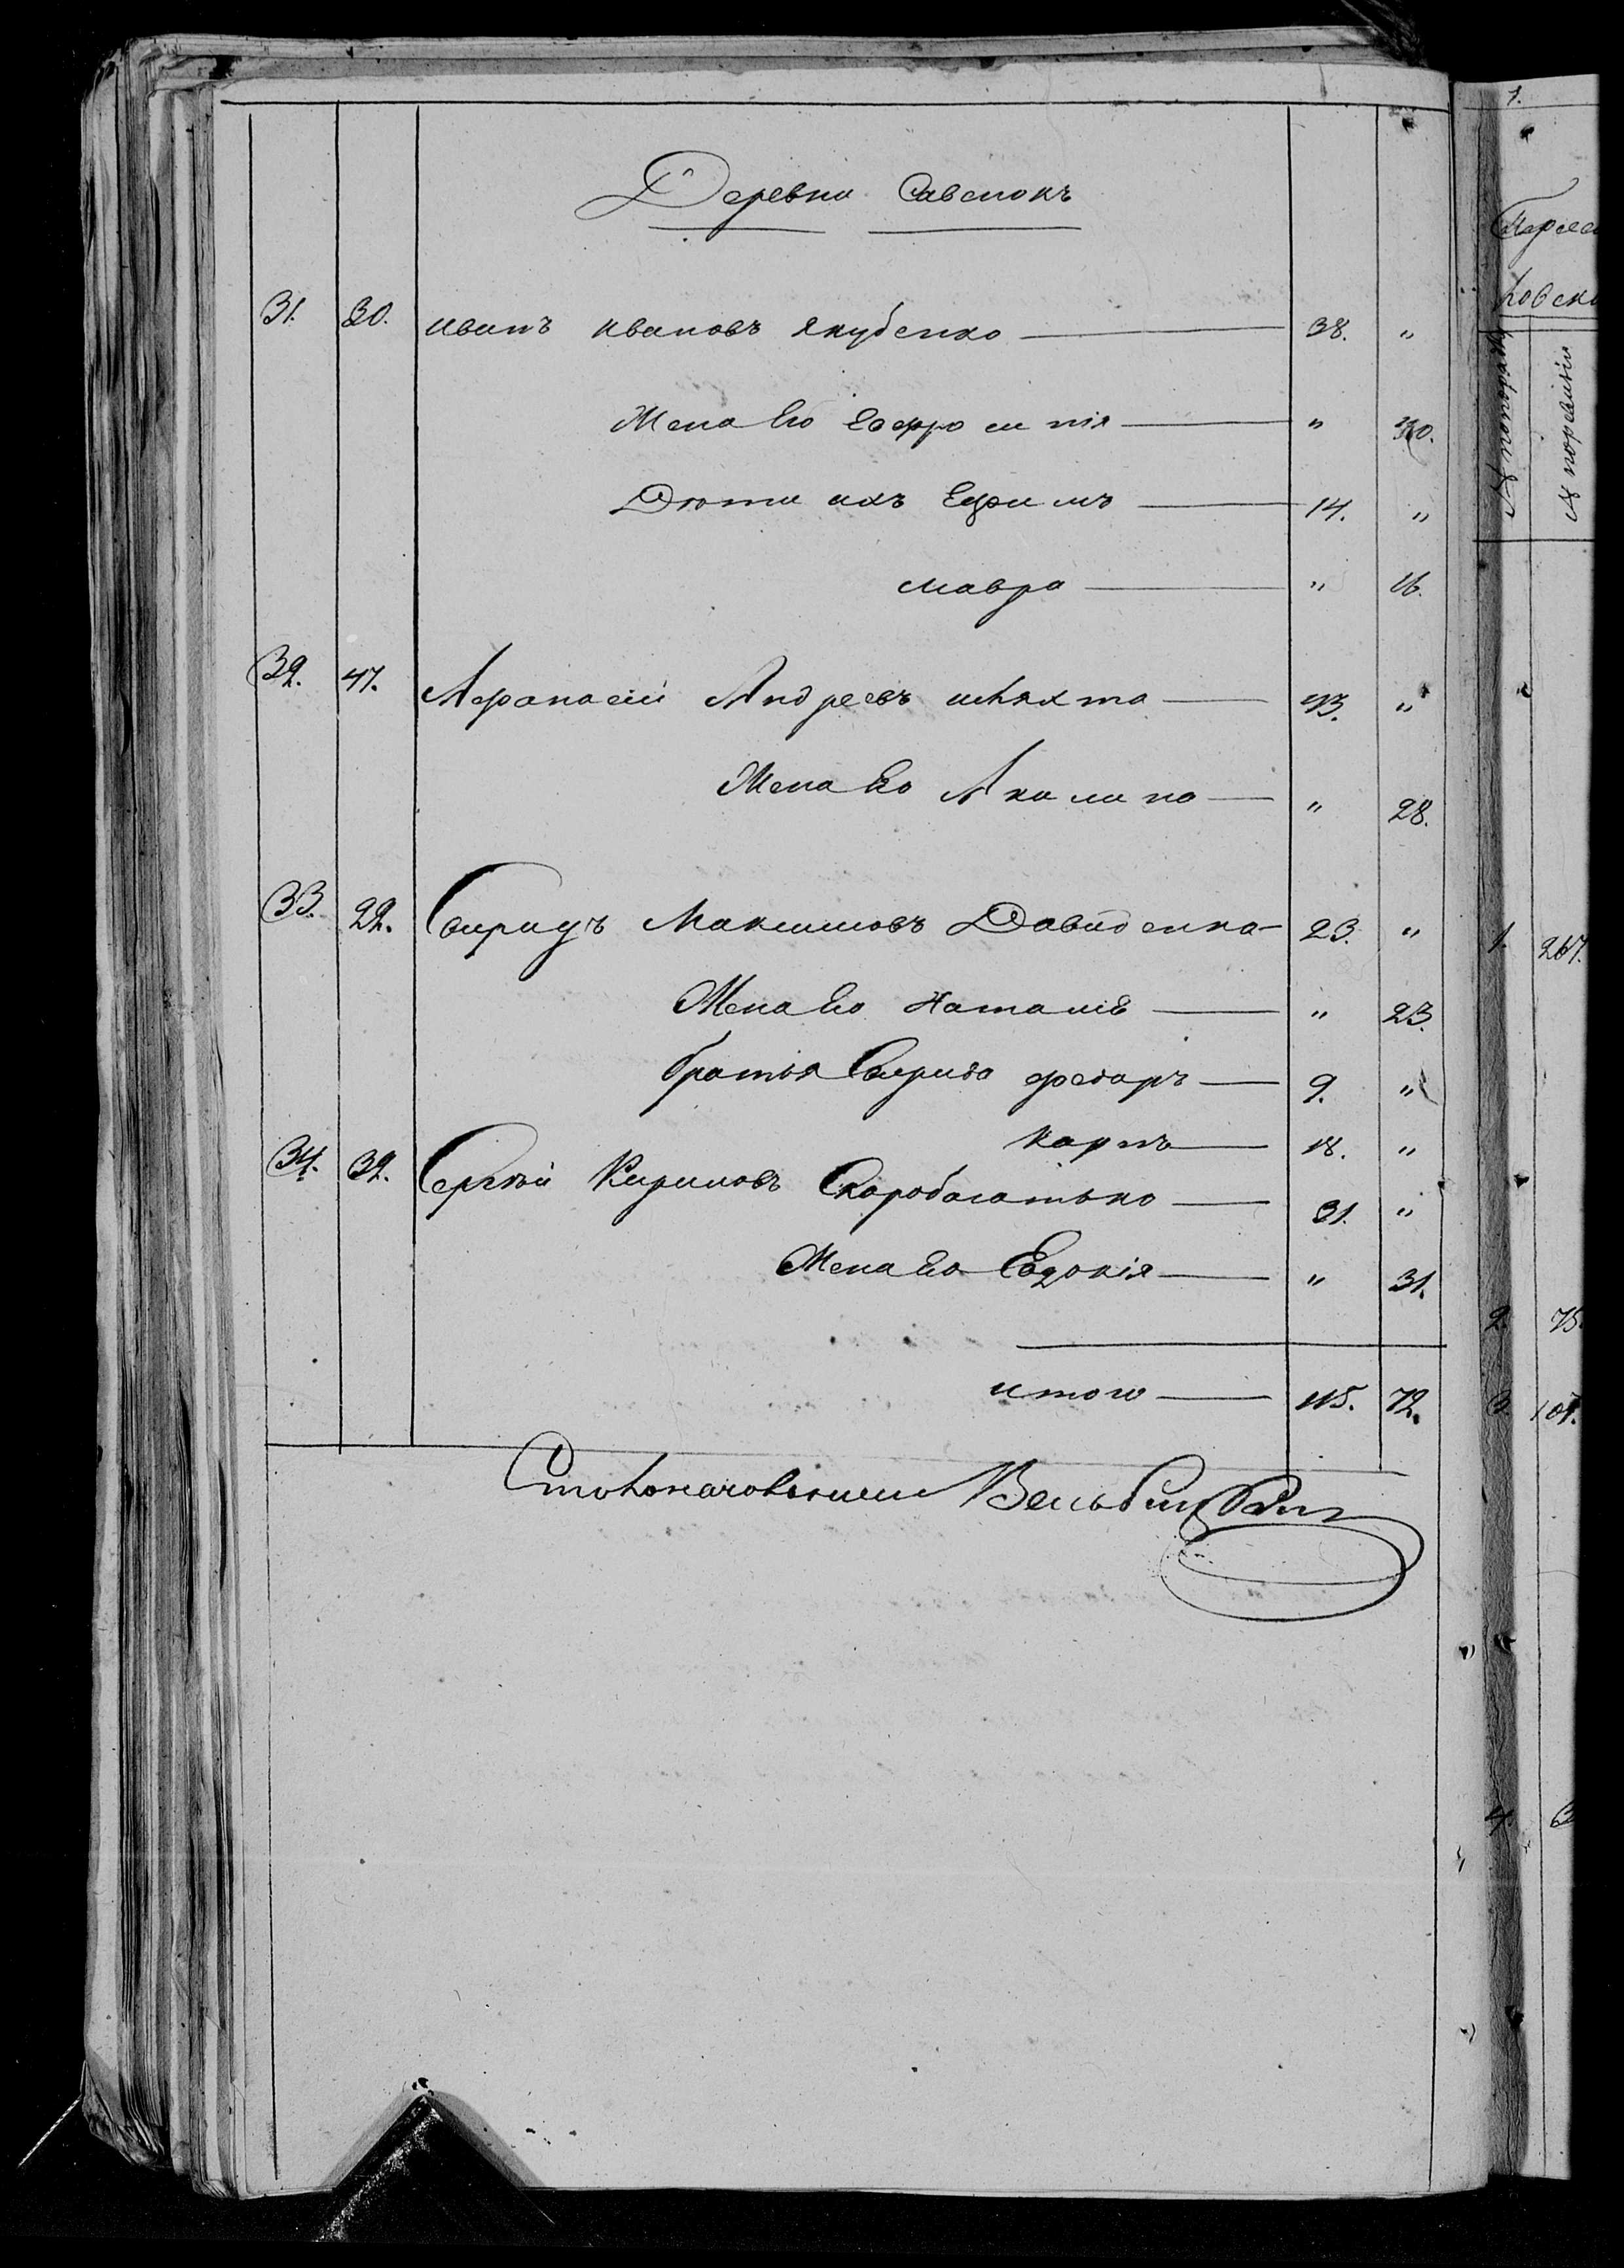 Деревни Савенокъ
31. 30. Иванъ Ивановъ Якубенко — 38. "
Жена Его Евфросинія — " 30.
Дѣти ихъ Ефимъ — 14. "
Мавра — " 16.
32. 47. Афанасій Андреевъ Шляхта — 43. "
Жена Его Акилина — " 28.
33. 22. Свиридъ Максимовъ Давиденко — 23. "
Жена Его Наталія — " 23.
братья Свирида Федоръ — 9. "
Карпъ — 18. "
34. 32. Сергѣй Кириловъ Скоробогатько — 31. "
Жена Его Евдокія — " 31.
Итого — 115. 72.
Столоначальникъ
1.
№ попорядку
№ поревизіи
1. 267.
2. 75.
3. 107.
4.